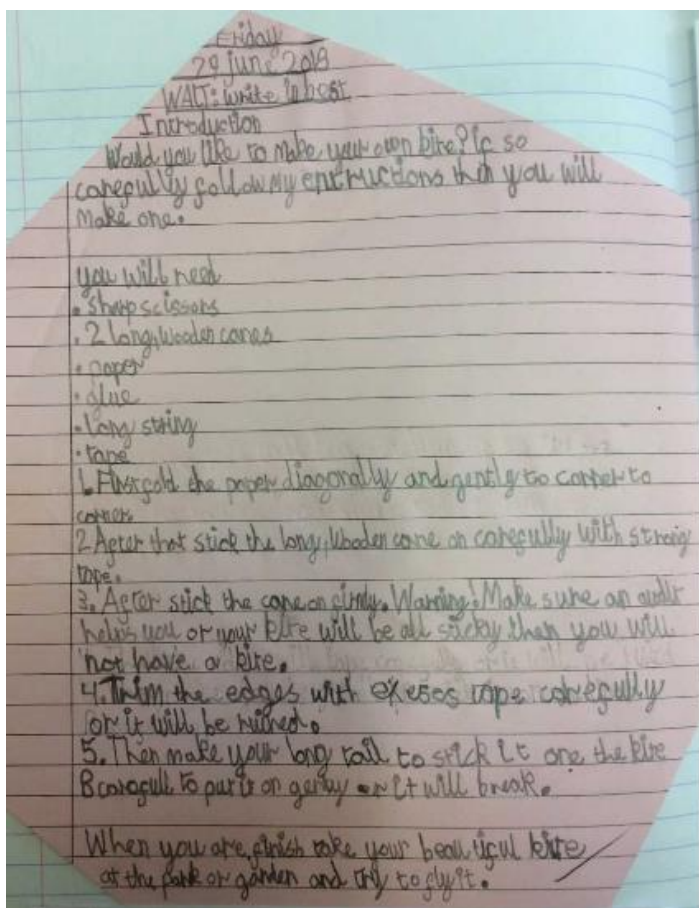 Friday
29 june 2018
WALT: write in best
Introduction
Would you like to make your own kite? If so
carefully follow my entructions then you will
make one.
you will need
. sharp scissors
. 2 long, wooden canes
. paper
. glue
. long string
. tape
1. First fold the paper diagonally and gently to corner to
corners
2. After that stick the long, wooden cane on carefully with strong
tape.
3. After stick the cane on firmly. Warning! Make sure an adult
helps you or your kite will be all sticky then you will
not have a kite.
4. Trim the edges with exeses tape carefully
or it will be ruined.
5. Then make your long tail to stick it one the kite
B carefull to put it on gentay or it will break.
When you are finish take your beautiful kite
at the park or garden and try to fly it.